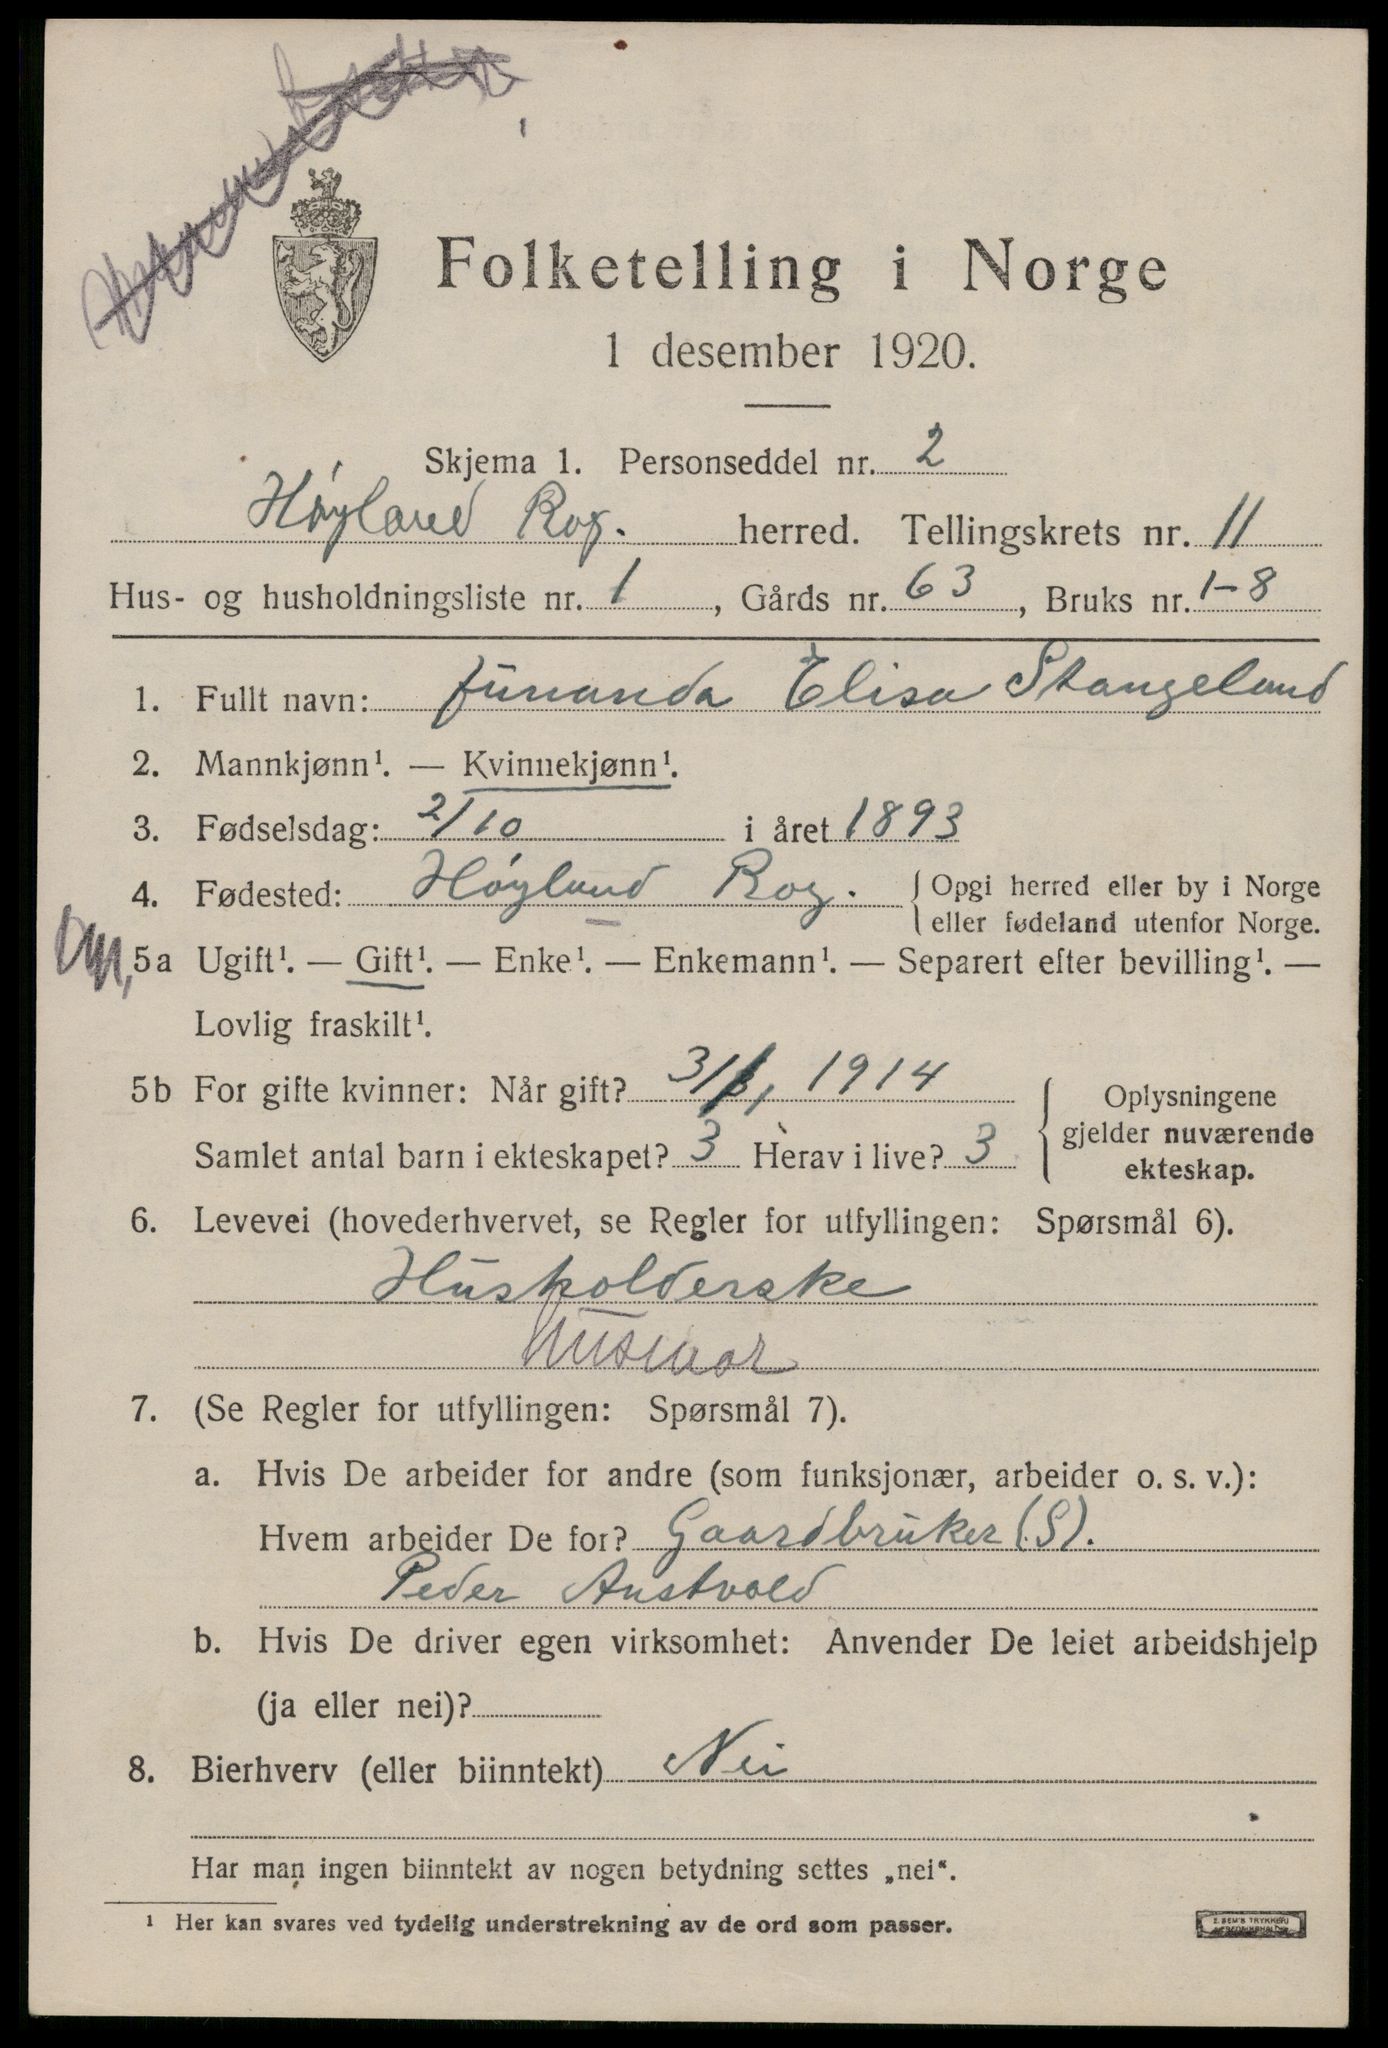 Folketelling i Norge
1 desember 1920.
Skjema 1. Personseddel nr. 2
Høyland Rog. herred. Tellingskrets nr. 11
Hus- og husholdningsliste nr. 1, Gårds nr. 63, Bruks nr. 1-8
1. Fullt navn: Elisa Stangeland
2. Mannkjønn¹. — Kvinnekjønn¹.
3. Fødselsdag: 2/10 i året 1893
4. Fødested: Høyland Rog. { Opgi herred eller by i Norge
eller fødeland utenfor Norge.
5a Ugift¹. — Gift¹. — Enke¹. — Enkemann¹. — Separert efter bevilling¹. —
Lovlig fraskilt¹.
5b For gifte kvinner: Når gift? 1914
Samlet antal barn i ekteskapet? 3 Herav i live? 3
Oplysningene
gjelder nuværende
ekteskap.
6. Levevei (hovederhvervet, se Regler for utfyllingen: Spørsmål 6).
Husholderske
Husmor
7. (Se Regler for utfyllingen: Spørsmål 7).
a. Hvis De arbeider for andre (som funksjonær, arbeider o. s. v.):
Hvem arbeider De for? Gaardbruker (S).
Peder Austvold
b. Hvis De driver egen virksomhet: Anvender De leiet arbeidshjelp
(ja eller nei)?
8. Bierhverv (eller biinntekt) Nei
Har man ingen biinntekt av nogen betydning settes „nei“.
¹ Her kan svares ved tydelig understrekning av de ord som passer.